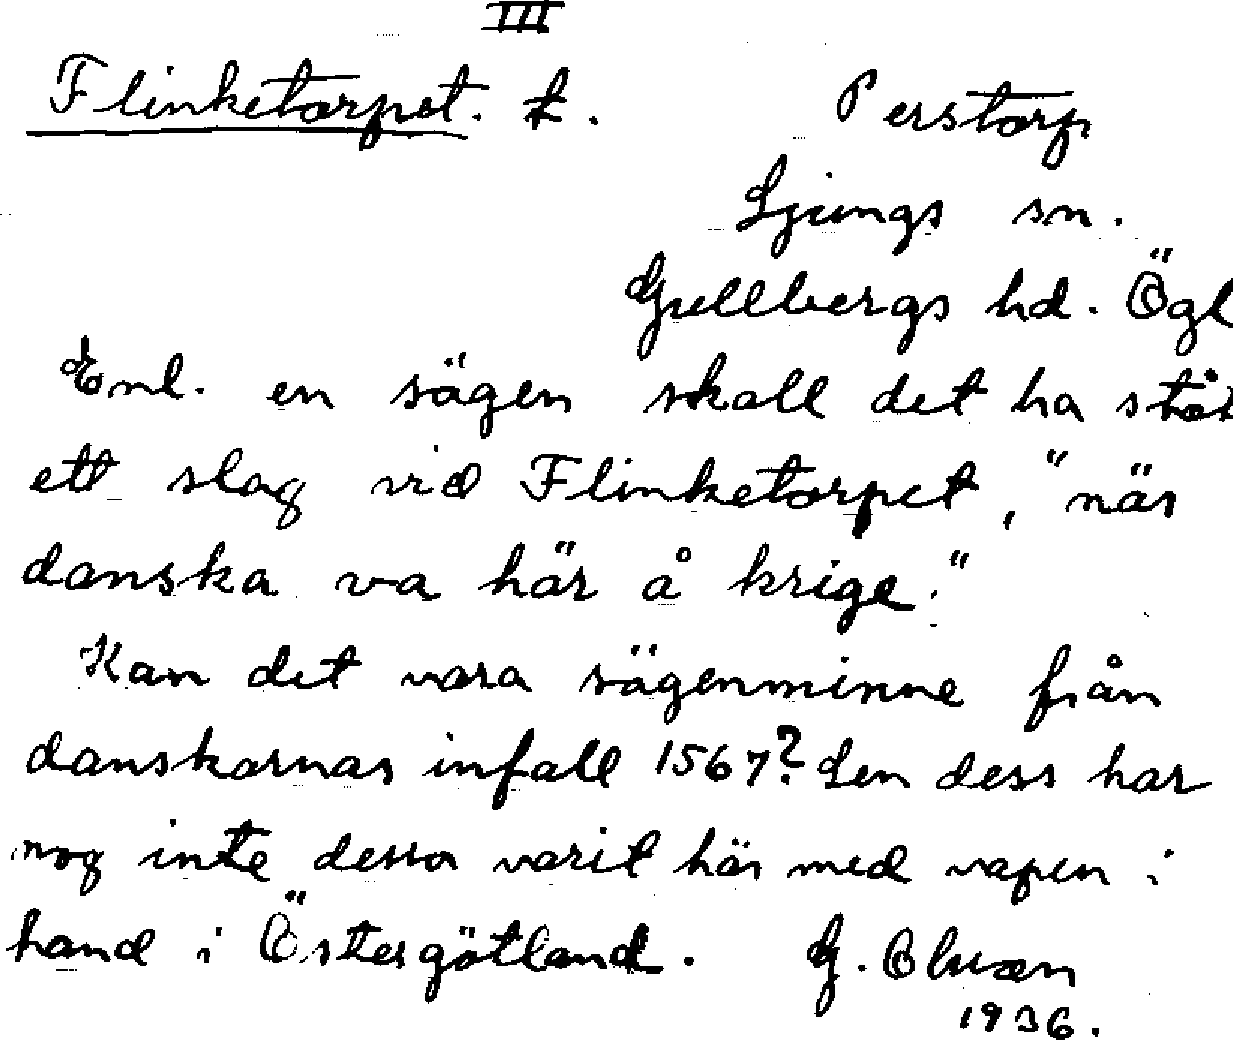 III
Flinketorpet. t. Perstorp
Ljungs sn.
Gullbergs hd. Ögl
Enl. en sägen skall det ha stått
ett slag vid Flinketorpet, "när
danska va här å krige."
Kan det vara sägenminne från
danskarnas infall 1567? Sen dess har
nog inte dessa varit här med vapen i
hand i Östergötland. G.
1936.